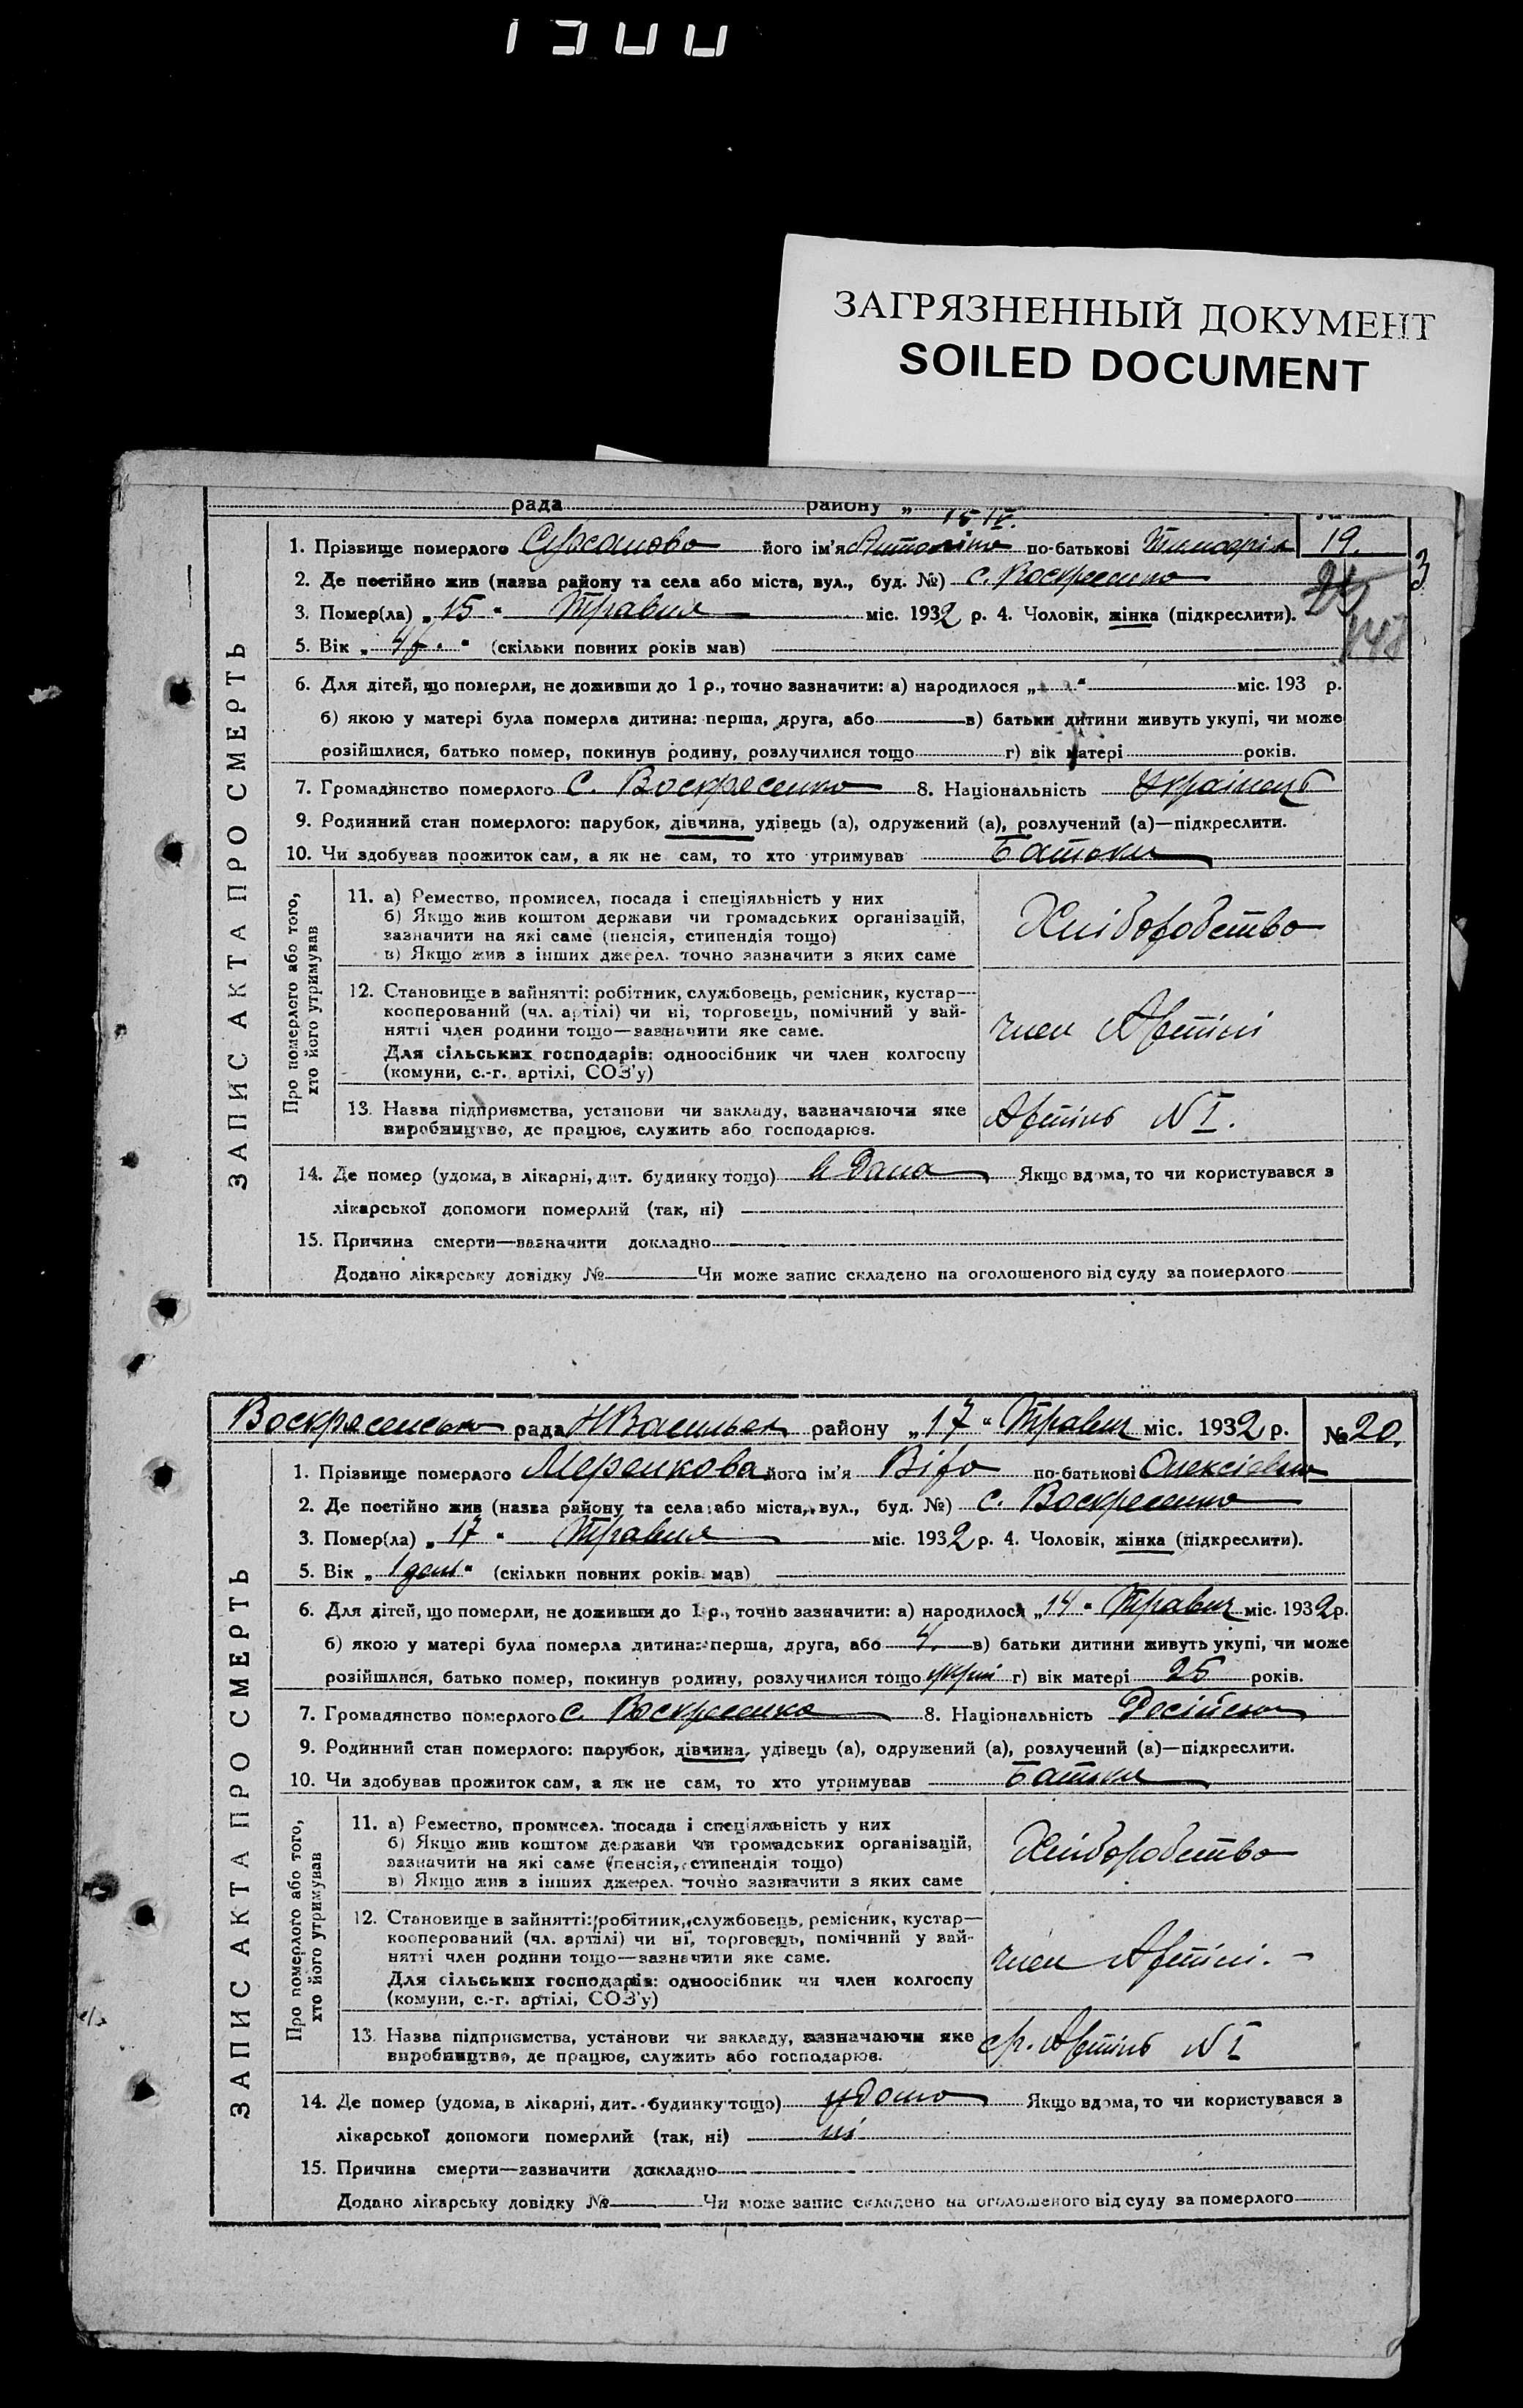 1300
ЗАГРЯЗНЕННЫЙ ДОКУМЕНТ
SOILED DOCUMENT
рада району „
ЗАПИС АКТА ПРО СМЕРТЬ
1. Прізвище померлого його ім'я по-батькові 19.
2. Де постійно жив (назва району та села або міста, вул., буд. №) с. Воскресенко
3. Помер(ла) „ 15 “ Травня міс. 1932 р. 4. Чоловік, жінка (підкреслити).
5. Вік „ “ (скільки повних років мав)
6. Для дітей, що померли, не доживши до 1 р., точно зазначити: а) народилося „ “ міс. 193 р.
б) якою у матері була померла дитина: перша, друга, або в) батьки дитини живуть укупі, чи може
розійшлися, батько помер, покинув родину, розлучилися тощо г) вік матері років.
7. Громадянство померлого С. Воскресенко 8. Національність Українець
9. Родинний стан померлого: парубок, дівчина, удівець (а), одружений (а), розлучений (а)—підкреслити.
10. Чи здобував прожиток сам, а як не сам, то хто утримував Батьки
Про померлого або того, хто його утримував
11. а) Ремество, промисел, посада і спеціяльність у них
б) Якщо жив коштом держави чи громадських організацій,
зазначити на які саме (пенсія, стипендія тощо)
в) Якщо жив з інших джерел. точно зазначити з яких саме
Хліборобство
12. Становище в зайнятті: робітник, службовець, ремісник, кустар—
кооперований (чл. артілі) чи ні, торговець, помічний у зай-
нятті член родини тощо—зазначити яке саме.
Для сільських господарів: одноосібник чи член колгоспу
(комуни, с.-г. артілі, СОЗ'у)
член Артілі
13. Назва підприємства, установи чи закладу, зазначаючи яке
виробництво, де працює, служить або господарює.
Артіль N I.
14. Де помер (удома, в лікарні, дит. будинку тощо) Якщо вдома, то чи користувався з
лікарської допомоги померлий (так, ні)
15. Причина смерти—зазначити докладно
Додано лікарську довідку № Чи може запис складено на оголошеного від суду за померлого
3
148
Воскресенськ рада НВасильев району „17“ Травня міс. 1932 р. № 20.
ЗАПИС АКТА ПРО СМЕРТЬ
1. Прізвище померлого Меренкова його ім'я Віра по-батькові Олексієвна
2. Де постійно жив (назва району та села або міста, вул., буд. №) с. Воскресенко
3. Помер(ла) „ 17 “ Травня міс. 1932 р. 4. Чоловік, жінка (підкреслити).
5. Вік „ 1 день “ (скільки повних років мав)
6. Для дітей, що померли, не доживши до 1 р., точно зазначити: а) народилося „14“ Травня міс. 1932 р.
б) якою у матері була померла дитина: перша, друга, або 4. в) батьки дитини живуть укупі, чи може
розійшлися, батько помер, покинув родину, розлучилися тощо укупі г) вік матері 25 років.
7. Громадянство померлого с. Воскресенка 8. Національність
9. Родинний стан померлого: парубок, дівчина, удівець (а), одружений (а), розлучений (а)—підкреслити.
10. Чи здобував прожиток сам, а як не сам, то хто утримував Батьки
Про померлого або того, хто його утримував
11. а) Ремество, промисел. посада і спеціяльність у них
б) Якщо жив коштом держави чи громадських організацій,
зазначити на які саме (пенсія, стипендія тощо)
в) Якщо жив з інших джерел. точно зазначити з яких саме
Хліборобство
12. Становище в зайнятті: робітник, службовець, ремісник, кустар—
кооперований (чл. артілі) чи ні, торговець, помічний у зай-
нятті член родини тощо—зазначити яке саме.
Для сільських господарів: одноосібник чи член колгоспу
(комуни, с.-г. артілі, СОЗ'у)
член Артілі. –
13. Назва підприємства, установи чи закладу, зазначаючи яке
виробництво, де працює, служить або господарює.
Артіль N I
14. Де помер (удома, в лікарні, дит. будинку тощо) удома Якщо вдома, то чи користувався з
лікарської допомоги померлий (так, ні) ні
15. Причина смерти—зазначити докладно
Додано лікарську довідку № Чи може запис складено на оголошеного від суду за померлого